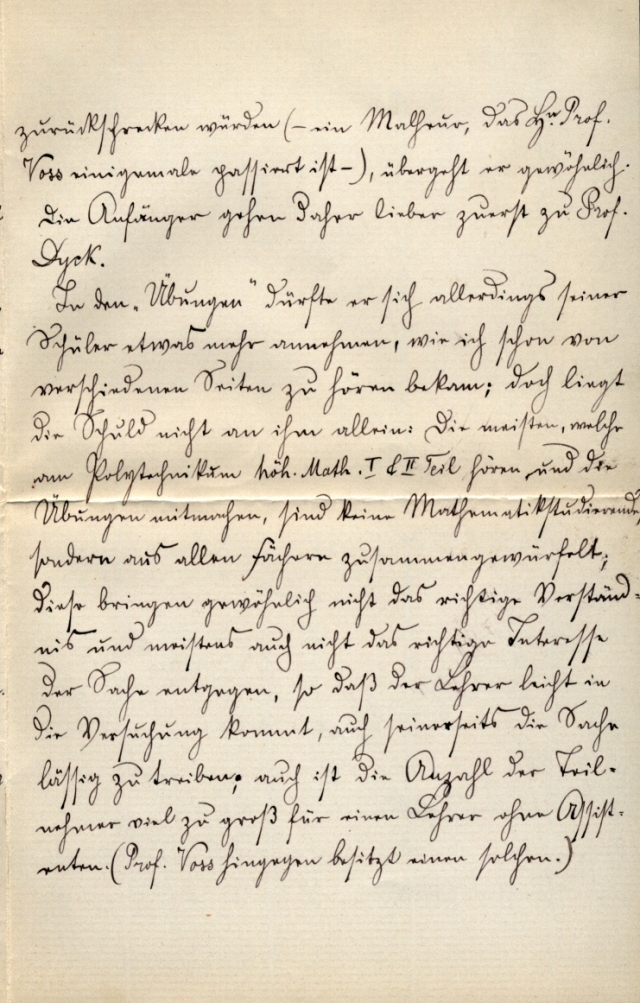 zurückschrecken würden (– ein Malheur, das Hr. Prof.
Voss einigemale passiert ist –), übergeht er gewöhnlich.
Die Anfänger gehen daher lieber zuerst zu Prof.
Dyck.
In den „Übungen“ dürfte er sich allerdings seiner
Schüler etwas mehr annehmen, wie ich schon von
verschiedenen Seiten zu hören bekam; doch liegt
die Schuld nicht an ihm allein: Die meisten, welche
am Polytechnikum höh. Math. I & II Teil hören und die
Übungen mitmachen, sind keine Mathematikstudierende,
sondern aus allen Fächern zusammengewürfelt;
diese bringen gewöhnlich nicht das richtige Verständ-
nis und meistens auch nicht das richtige Interesse
der Sache entgegen, so daß der Lehrer leicht in
die Versuchung kommt, auch seinerseits die Sache
lässig zu treiben; auch ist die Anzahl der Teil-
nehmer viel zu groß für einen Lehrer ohne Assist-
enten. (Prof. Voss hingegen besitzt einen solchen.)